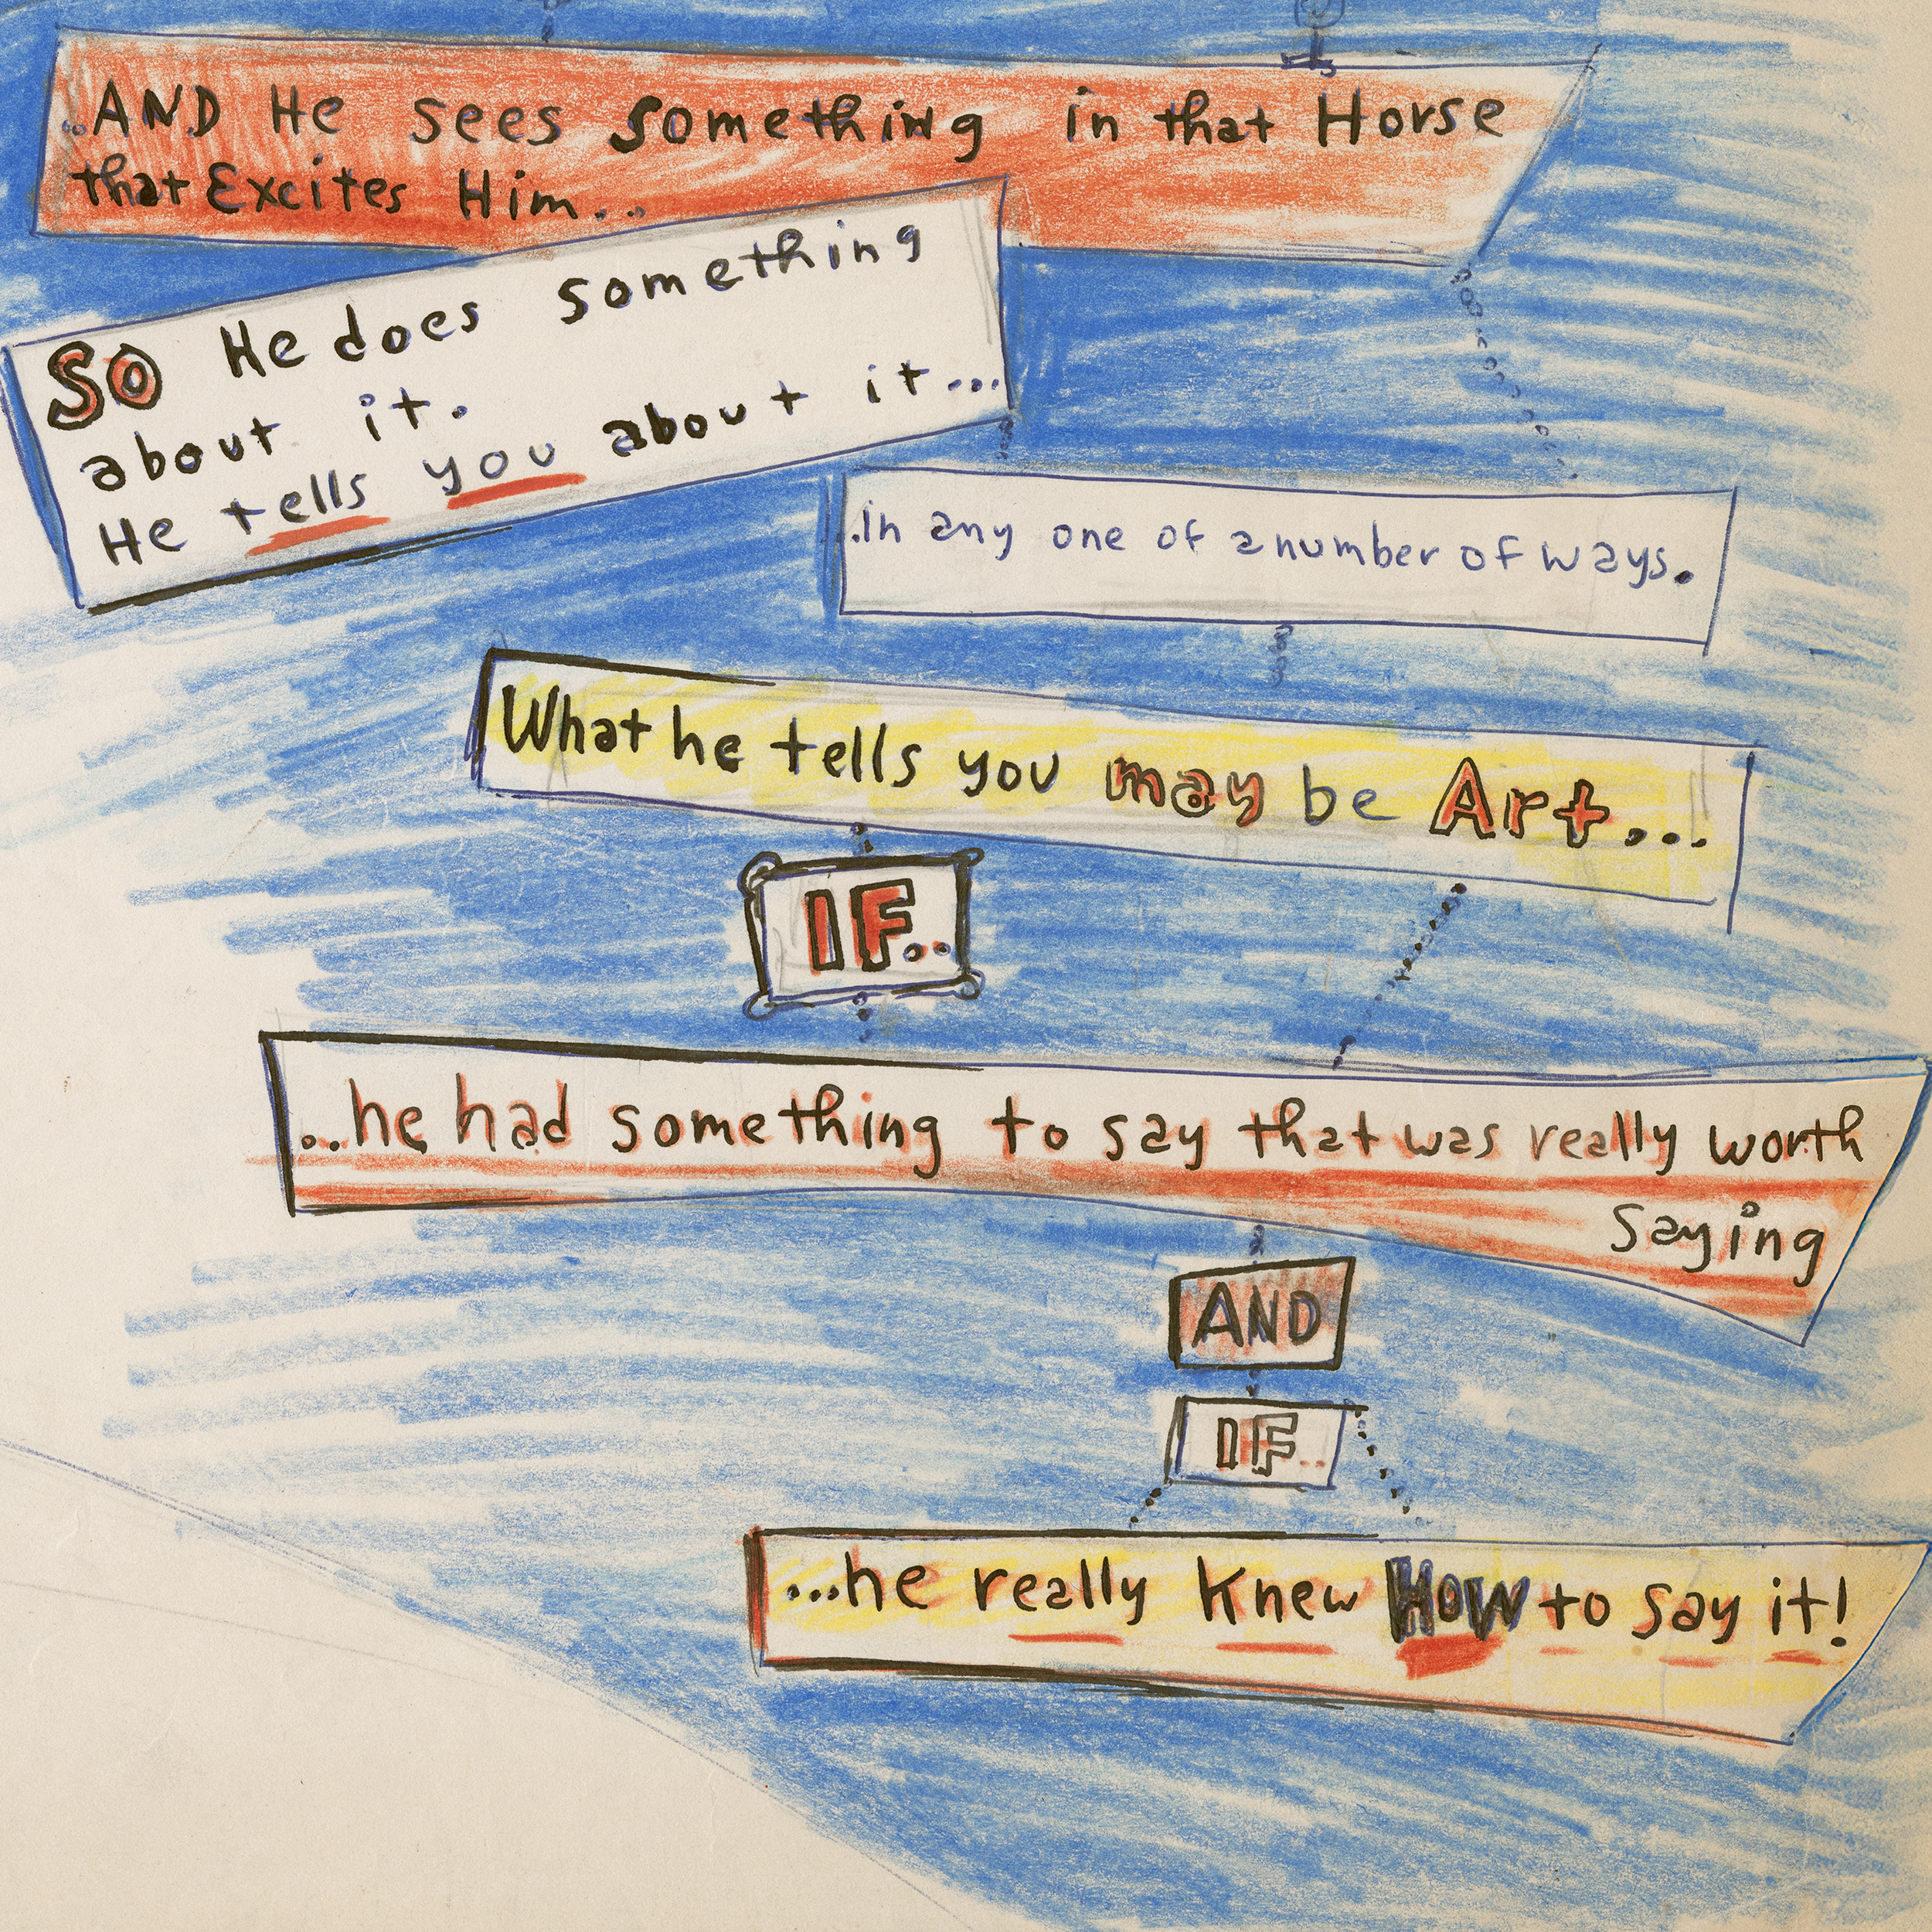 ..AND He sees something in that Horse
that Excites Him...
SO He does something
about it.
He tells you about it...
..in any one of a number of ways.
What he tells you may be Art...
IF..
...he had something to say that was really worth
saying
AND
IF..
...he really knew HOW to say it!